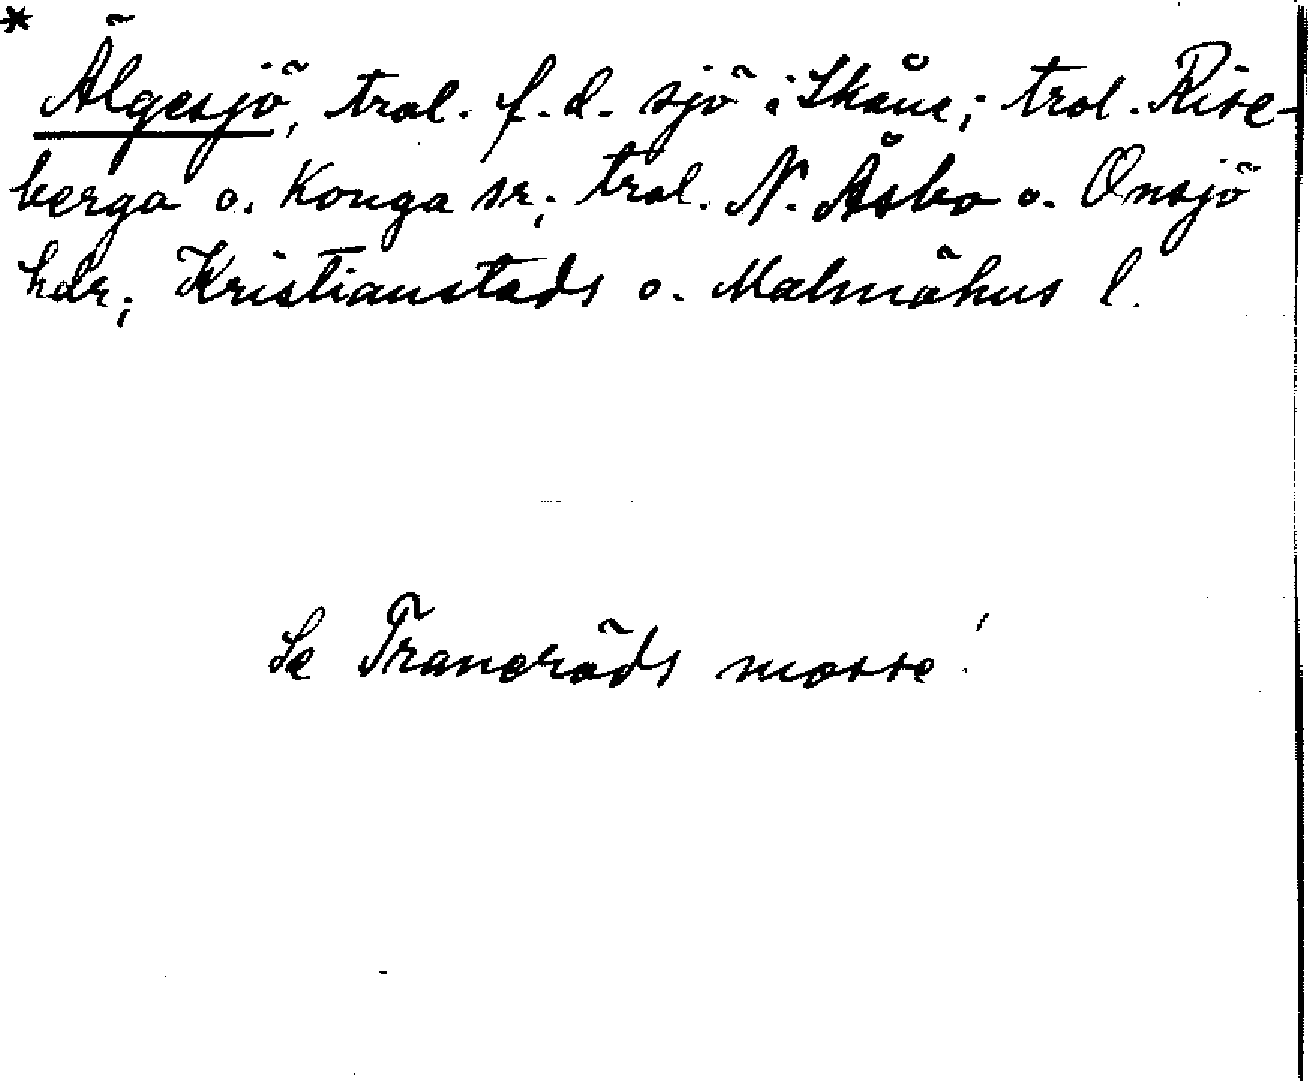 *
Älgesjö, trol. f.d. sjö i Skåne; trol. Rise-
berga o. Konga sr; trol. N. Åsbo o. Onsjö
hdr; Kristianstads o. Malmöhus l.
Se Traneröds mosse!